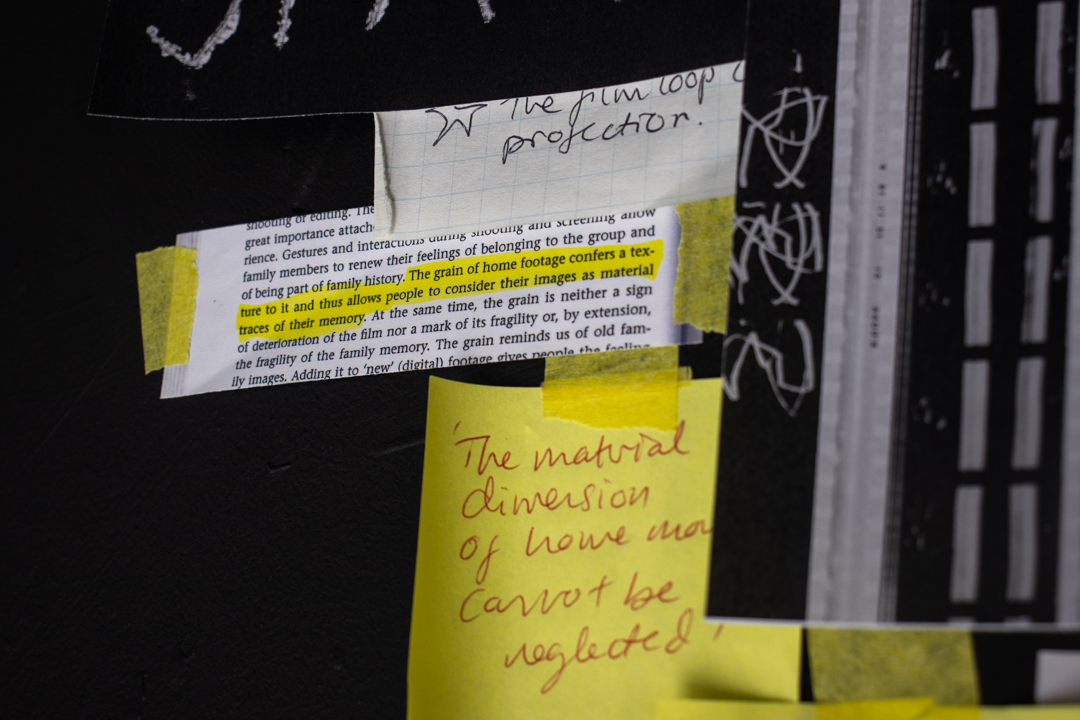 The film loop
projection.
shooting or editing. The
great importance attach
rience. Gestures and interactions during shooting and screening allow
family members to renew their feelings of belonging to the group and
of being part of family history. The grain of home footage confers a tex-
ture to it and thus allows people to consider their images as material
traces of their memory. At the same time, the grain is neither a sign
of deterioration of the film nor a mark of its fragility or, by extension,
the fragility of the family memory. The grain reminds us of old fam-
ily images. Adding it to 'new' (digital) footage gives people the feeling
'The material
dimension
of home mov
cannot be
neglected'